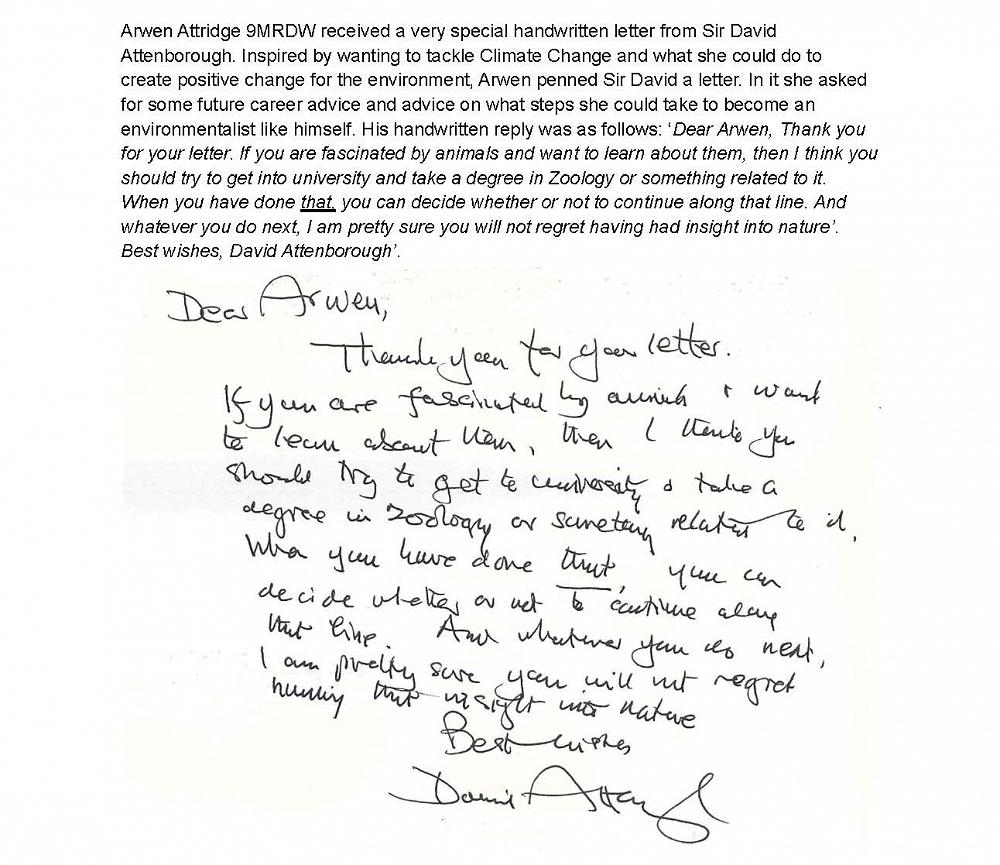 Arwen Attridge 9MRDW received a very special handwritten letter from Sir David
Attenborough. Inspired by wanting to tackle Climate Change and what she could do to
create positive change for the environment, Arwen penned Sir David a letter. In it she asked
for some future career advice and advice on what steps she could take to become an
environmentalist like himself. His handwritten reply was as follows: ‘Dear Arwen, Thank you
for your letter. If you are fascinated by animals and want to learn about them, then I think you
should try to get into university and take a degree in Zoology or something related to it.
When you have done that, you can decide whether or not to continue along that line. And
whatever you do next, I am pretty sure you will not regret having had insight into nature’.
Best wishes, David Attenborough’.
Dear Arwen,
Thank you for your letter.
If you are fascinated by animals & want
to learn about them, then I think you
should try to get to university & take a
degree in Zoology or something related to it.
When you have done that, you can
decide whether or not to continue along
that line. And whatever you do next,
I am pretty sure you will not regret
having that insight into nature
Best wishes
David Attenborough